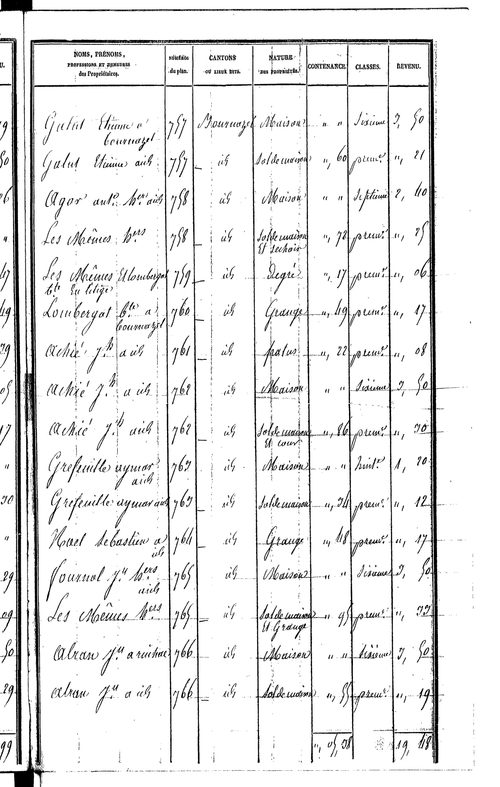 NOMS, PRÉNORS, PROFESSIONS ET DEMEURES des Propriétaires. Numéros du plan. CANTONS OU LIEUX DITS. NATURE DES PROPRIÉTÉS. CONTENANCE. CLASSES. REVENU.
Galut Etienne a Bournazel 757 Bournazel Maison " " Sixieme 3, 50
Galut Etienne aid 757 id Sol de maison ", 60 prem.re ", 21
Agor ant.e h.ers aid 758 id Maison " " Septieme 2, 40
Les Mêmes h.ers 758 id Sol de maison Et sechoir ", 72 prem.re ", 25
Les Mêmes Et Lombergot b.te En litige 759 id Degré ", 17 prem.re ", 06
Lombergot b.te a bournazel 760 id Grange ", 49 prem.re ", 17
j.h a aid 761 id patus ", 22 prem.re ", 08
j.h a aid 762 id Maison " " Sixieme 3, 50
j.h a aid 762 id Sol de maison Et cour ", 86 prem.re ", 30
Grefeuille aymar aid 763 id Maison " " huit.e 1, 20
Grefeuille aymar aid 763 id Sol de maison ", 34 prem.re ", 12
Sebastien a id 764 id Grange ", 48 prem.re ", 17
j.n h.ers aid 765 id Maison " " Sixieme 3, 50
Les Mêmes h.ers 765 id Sol de maison Et Grange ", 95 prem.re ", 33
Alran j.n a 766 id Maison " " Sixieme 3, 50
alran j.n a id 766 id Sol de maison ", 55 prem.re ", 19
", 05, 08 19, 48